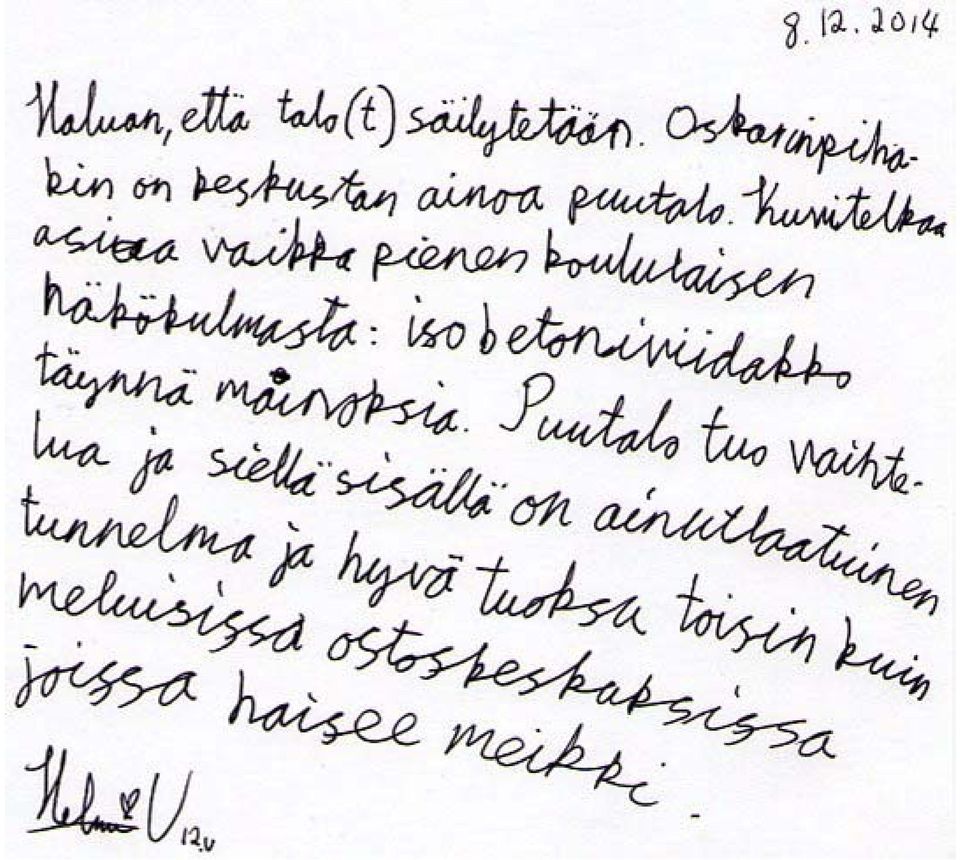 8.12.2014
Haluan, että talo(t) säilytetään. Oskarinpiha-
kin on keskustan ainoa puutalo. Kuvitelkaa
asiaa vaikka pienen koululaisen
näkökulmasta: iso betoniviidakko
täynnä mainoksia. Puutalo tuo vaihte-
lua ja siellä sisällä on ainutlaatuinen
tunnelma ja hyvä tuoksu toisin kuin
meluisissa ostoskeskuksissa
joissa haisee meikki.
Helmi U 12.v